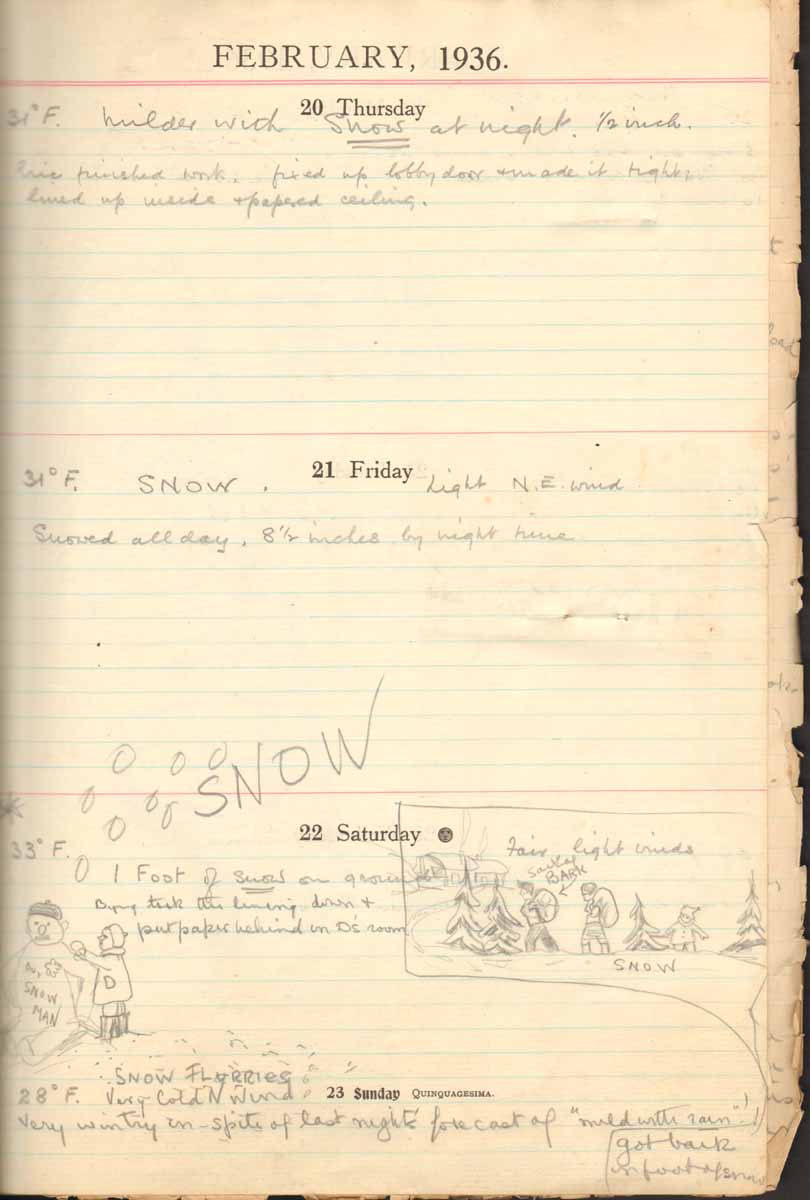 FEBRUARY, 1936.
20 Thursday
31° F. Milder with Snow at night. 1/2 inch.
Eric finished work. fixed up lobby door + made it tight,
lined up inside + papered ceiling.
21 Friday
31° F. SNOW. Light N.E. wind
Snowed all day, 8 1/2 inches by night time
SNOW
22 Saturday
33° F.
Fair, light winds
1 Foot of Snow on ground
sacks of
BARK
took the lining down +
put paper behind in D's room
SNOW
MAN
D
SNOW
SNOW FLURRIES
23 Sunday QUINQUAGESIMA.
28° F. Very Cold N Wind
Very wintry in-spite of last nights forecast of "mild with rain"!!
got bark
in foot of snow